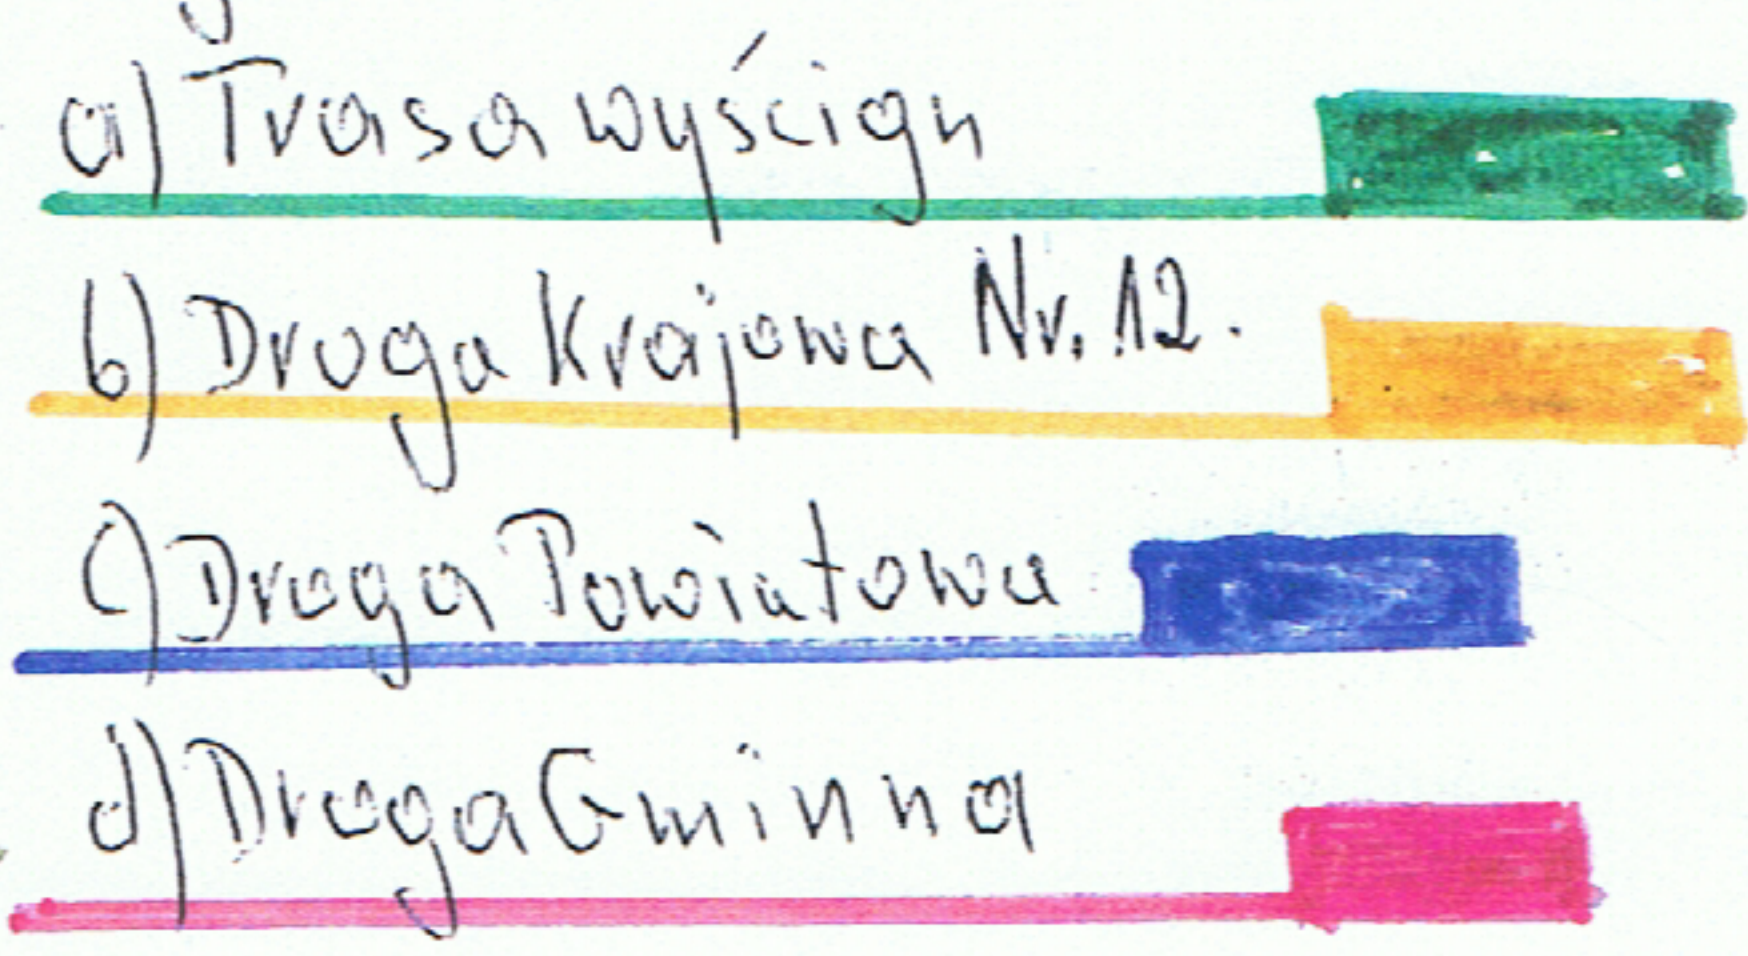 a) Trasa wyścigu
b) Droga Krajowa Nr. 12.
c) Droga Powiatowa
d) Droga Gminna